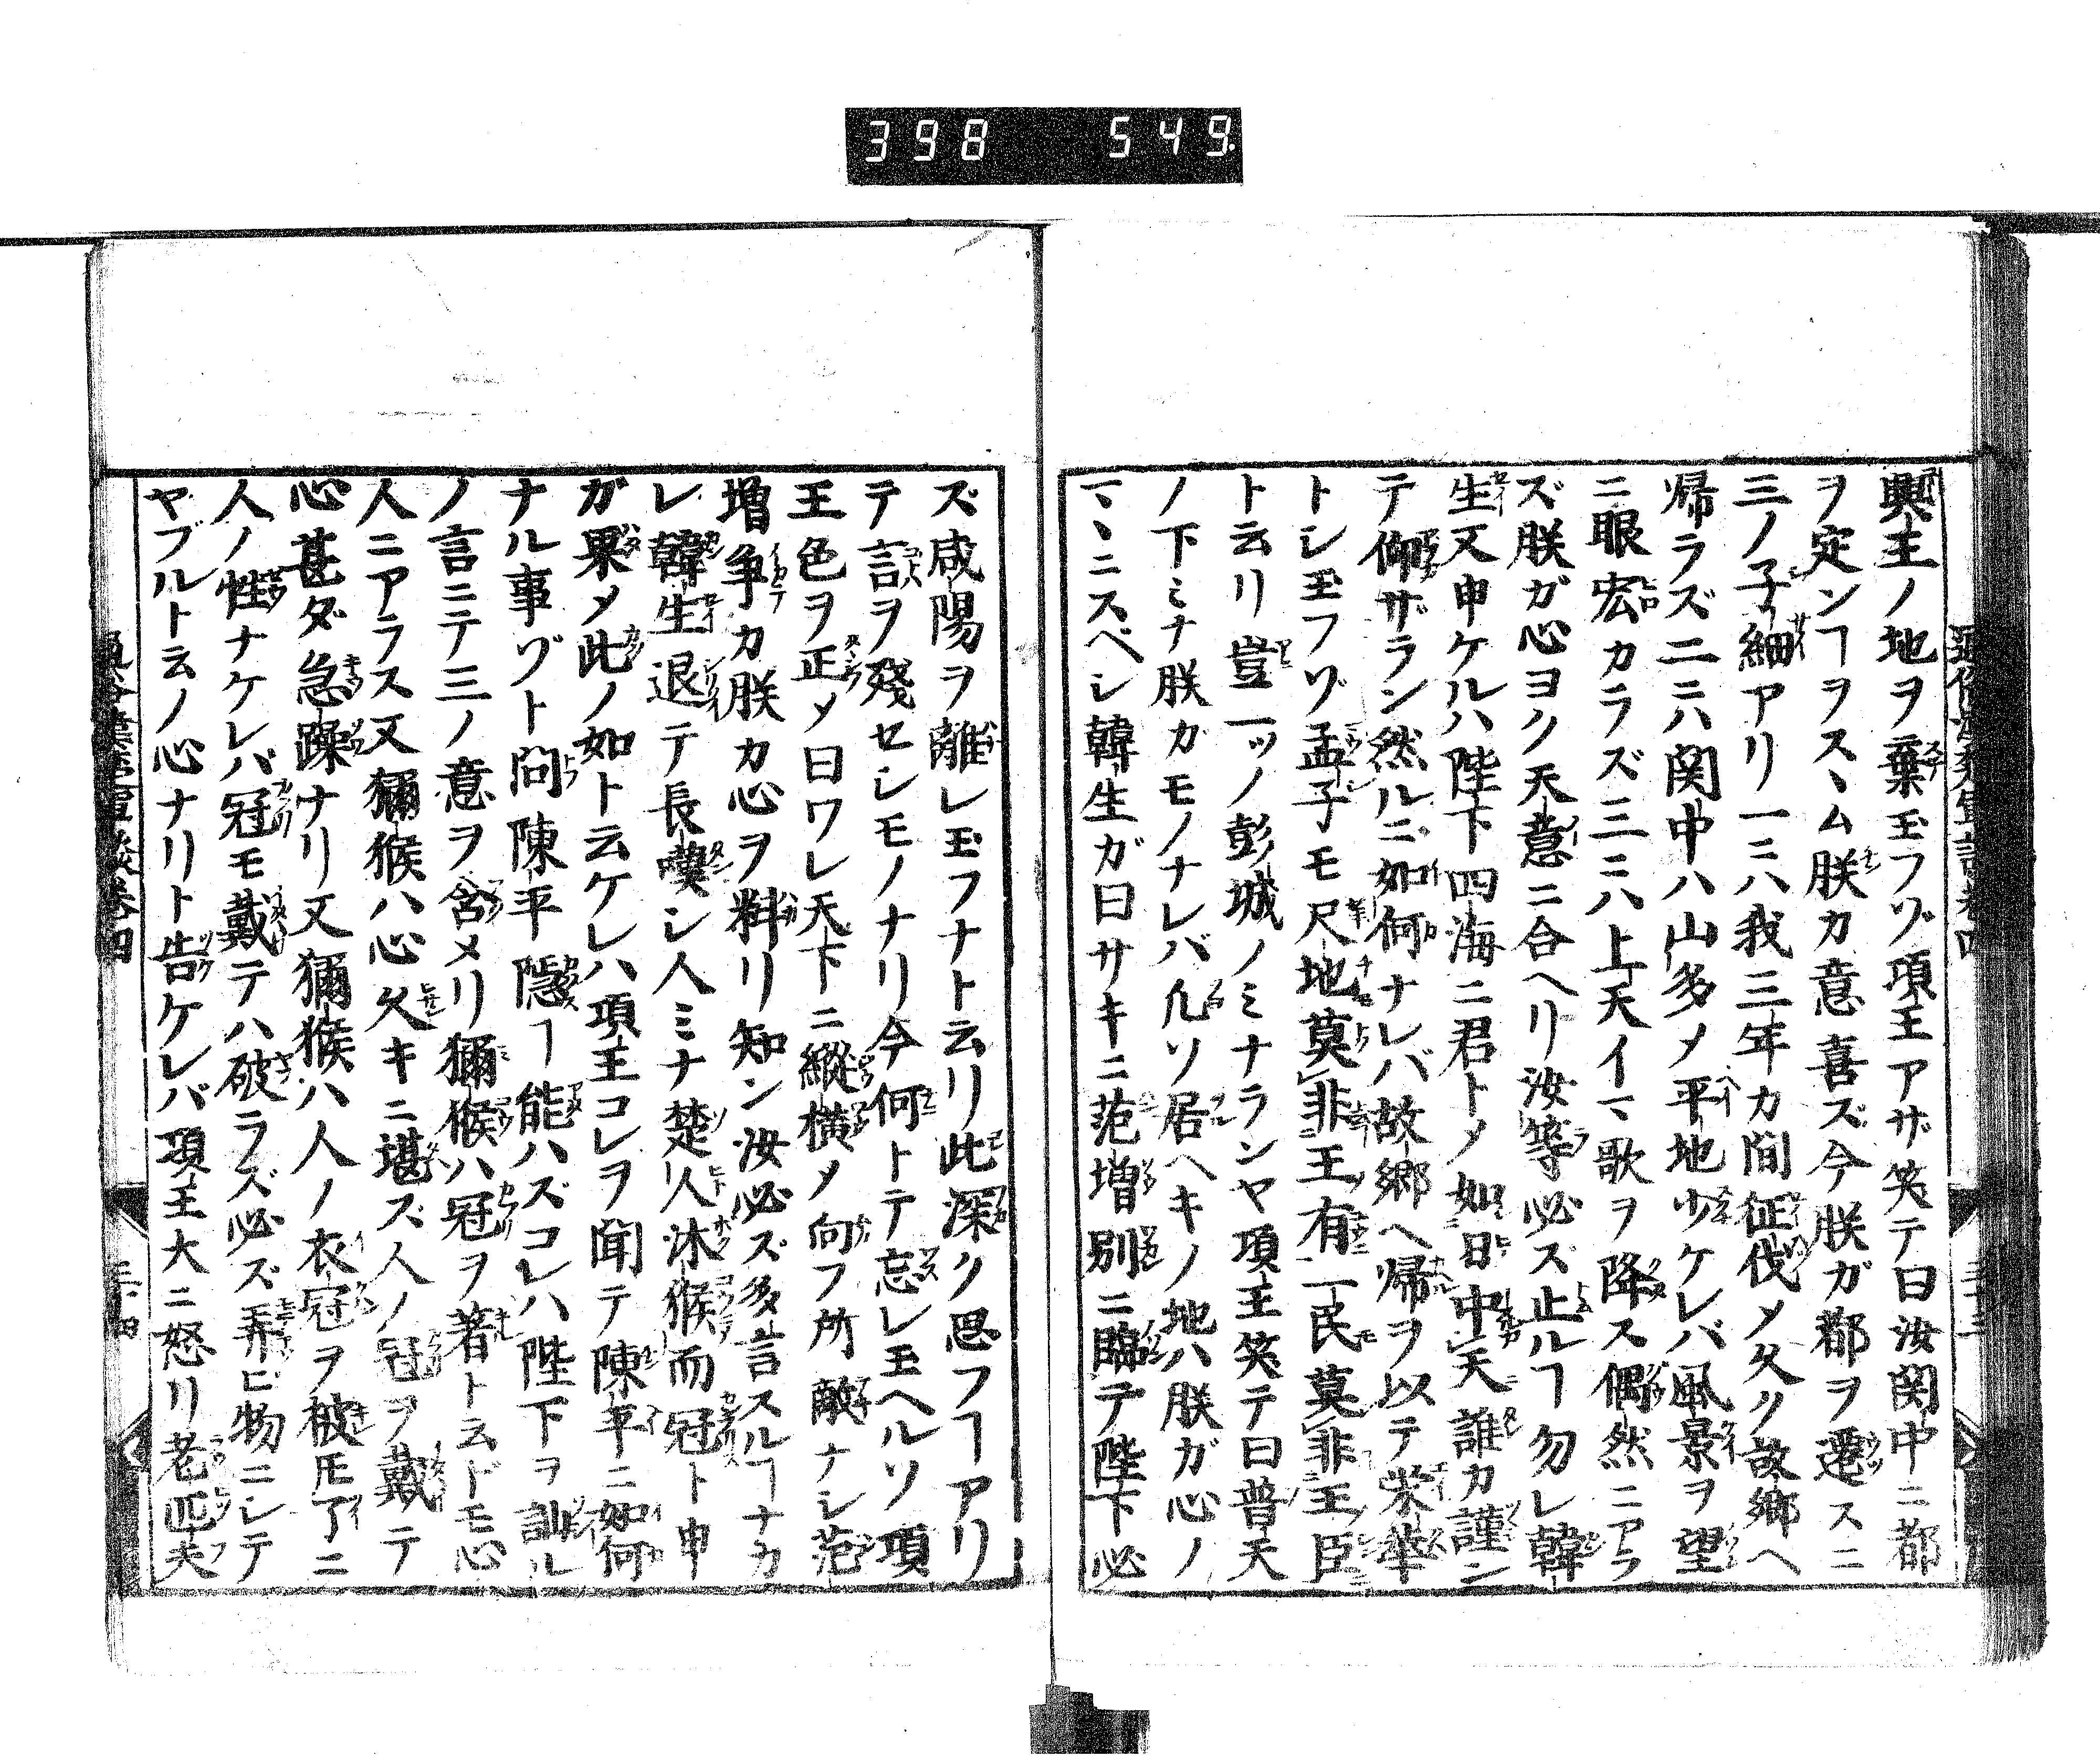 398 549
興王ノ地ヲ棄玉フゾ項王アザ笑テ曰汝関中ニ都
ヲ定ンヿヲスヽム朕カ意喜ズ今朕ガ都ヲ遷スニ
三ノ子細アリ一ニハ我三年カ間征伐メ久ク故郷ヘ
帰ラズ二ニハ関中ハ山多メ平地少ケレバ風景ヲ望
ニ眼宏カラズ三ニハ上天イマ歌ヲ降ス偶然ニアラ
ズ朕ガ心ヨク天意ニ合ヘリ汝等必ズ止ルヿ勿レ韓
生又申ケルハ陛下四海ニ君トメ如日中天誰カ謹ン
テ仰ザラン然ルニ如何ナレバ故郷ヘ帰ヲ以テ栄華
トシ玉フゾ孟子モ尺地莫非王有一民莫非王臣
ト云リ豈一ツノ彭城ノミナランヤ項王笑テ曰普天
ノ下ミナ朕カモノナレバ凡ソ居ヘキノ地ハ朕ガ心ノ
マヽニスベシ韓生ガ曰サキニ范増別ニ臨テ陛下必
ズ咸陽ヲ離レ玉フナト云リ此深ク思フヿアリ
テ言ヲ残セシモノナリ今何トテ忘レ玉ヘルソ項
王色ヲ正メ曰ワレ天下ニ縦横メ向フ所敵ナシ范
増争カ朕カ心ヲ料リ知ン汝必ズ多言スルヿナカ
レ韓生退テ長嘆シ人ミナ楚人沐猴而冠ト申
ガ果メ此ノ如ト云ケレハ項王コレヲ聞テ陳平ニ如何
ナル事ゾト問陳平隠ヿ能ハズコレハ陛下ヲ訕ル
ノ言ニテ三ノ意ヲ含メリ獼猴ハ冠ヲ著ト云ドモ心
人ニアラス又獼猴ハ心久キニ堪ズ人ノ冠ヲ戴テ
心甚ダ急躁ナリ又獼猴ハ人ノ衣冠ヲ被モ了ニ
人ノ性ナケレバ冠モ戴テハ破ラズ必ズ弄ビ物ニシテ
ヤブルト云ノ心ナリト告ケレバ項王大ニ怒リ老匹夫